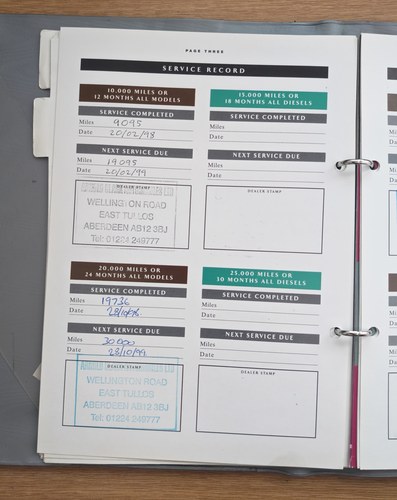 PAGE THREE
SERVICE RECORD
10,000 MILES OR
12 MONTHS ALL MODELS
SERVICE COMPLETED
Miles 9095
Date 20/02/98
NEXT SERVICE DUE
Miles 19095
Date 20/02/99
DEALER STAMP
WELLINGTON ROAD
EAST TULLOS
ABERDEEN AB12 3BJ
Tel: 01224 249777
15,000 MILES OR
18 MONTHS ALL DIESELS
SERVICE COMPLETED
Miles
Date
NEXT SERVICE DUE
Miles
Date
DEALER STAMP
20,000 MILES OR
24 MONTHS ALL MODELS
SERVICE COMPLETED
Miles 19736
Date 28/10/98
NEXT SERVICE DUE
Miles 30000
Date 28/10/99
DEALER STAMP
WELLINGTON ROAD
EAST TULLOS
ABERDEEN AB12 3BJ
Tel: 01224 249777
25,000 MILES OR
30 MONTHS ALL DIESELS
SERVICE COMPLETED
Miles
Date
NEXT SERVICE DUE
Miles
Date
DEALER STAMP